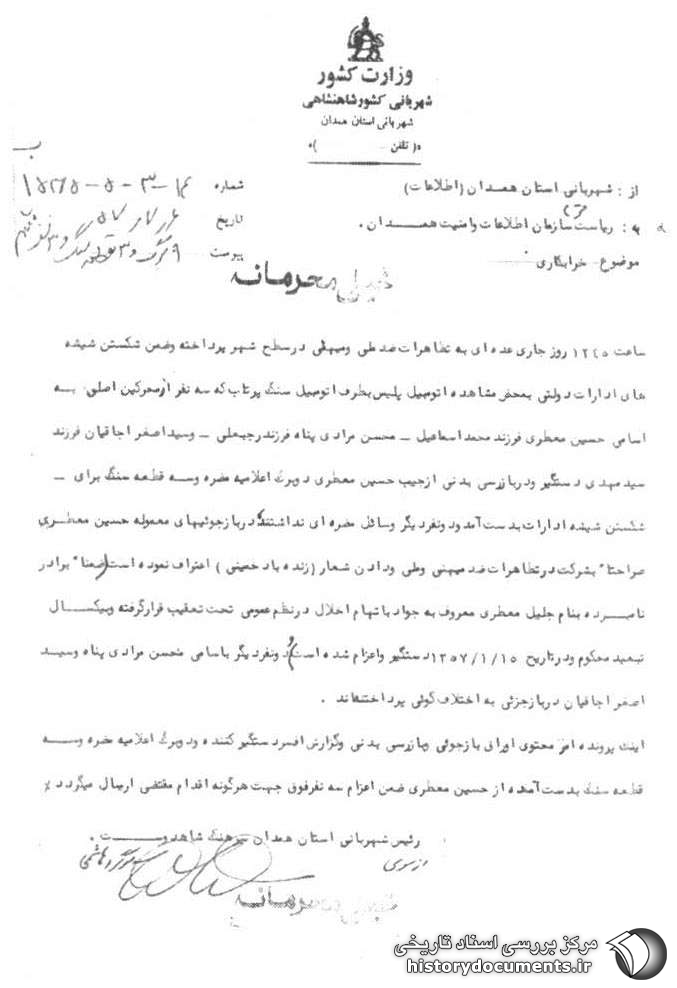 وزارت کشور
شهربانی کشور شاهنشاهی
شهربانی استان همدان
(تلفن )
شماره
تاریخ
پیوست
از : شهربانی استان همدان (اطلاعات)
به : ریاست سازمان اطلاعات و امنیت همدان .
موضوع - خرابکاری
خیلی محرمانه
ساعت ۱۲۱۵ روز جاری عده ای به تظاهرات ضد ملی ومیهنی در سطح شهر پرداخته وضمن شکستن شیشه
های ادارات دولتی بمحض مشاهده اتومبیل پلیس بطرف اتومبیل سنگ پرتاب که سه نفر از محرکین اصلی به
اسامی حسین معطری فرزند محمد اسماعیل - محسن مرادی پناه فرزند رجبعلی - وسید اصغر اجاقیان فرزند
سید مهدی دستگیر ودر بازرسی بدنی از جیب حسین معطری دوبرگ اعلامیه مضره وسه قطعه سنگ برای -
شکستن شیشه ادارات بدست آمد ودونفر دیگر وسائل مضره ای نداشتند در بازجوئیهای معموله حسین معطری
صراحتا" بشرکت در تظاهرات ضد میهنی وملی ودادن شعار (زنده باد خمینی) اعتراف نموده است ضمنا" برادر
نامبرده بنام جلیل معطری معروف به جواد باتهام اخلال در نظم عمومی تحت تعقیب قرار گرفته وبیکسال
تبعید محکوم ودر تاریخ ۱۳۵۷/۱/۱۵ دستگیر واعزام شده است و دونفر دیگر باسامی محسن مرادی پناه وسید
اصغر اجاقیان در بازجوئی به اختلاف گوئی پرداخته‌اند .
اینک پرونده امر محتوی اوراق بازجوئی وبازرسی بدنی وگزارش افسر دستگیر کننده ودوبرگ اعلامیه مضره وسه
قطعه سنگ بدست آمده از حسین معطری ضمن اعزام سه نفر فوق جهت هرگونه اقدام مقتضی ارسال میگردد
رئیس شهربانی استان همدان سرهنگ شاهدوست .
خیلی محرمانه
مرکز بررسی اسناد تاریخی
historydocuments.ir